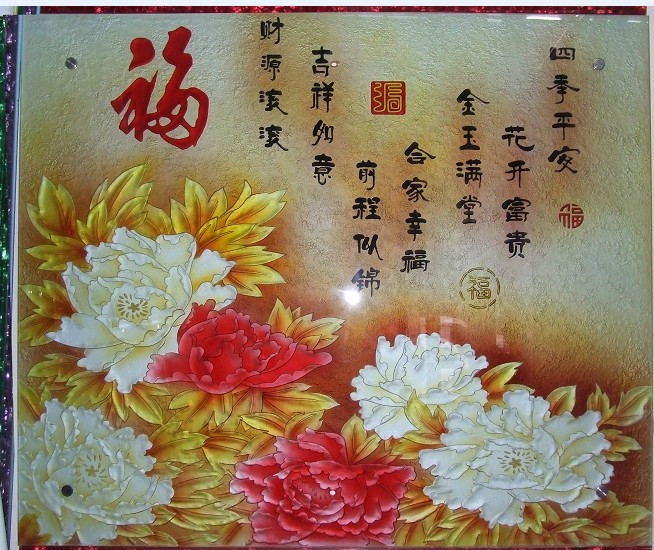 四季平安
花开富贵
金玉满堂
合家幸福
前程似锦
吉祥如意
财源滚滚
福
福
福
福